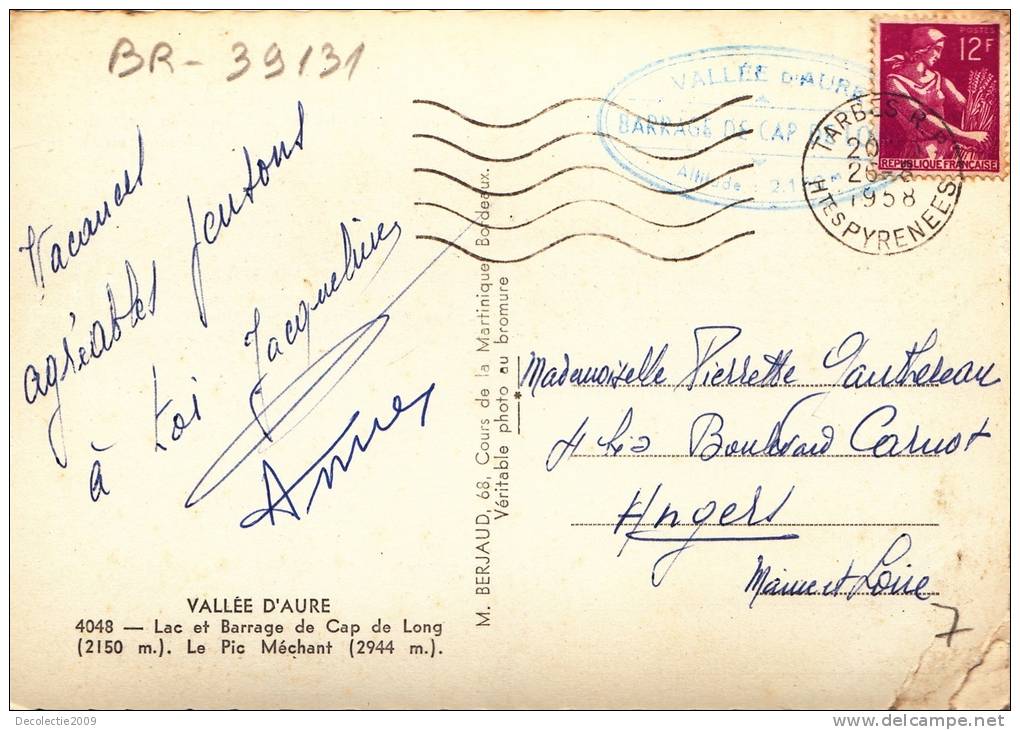 BR-39131
Vacances
agréables pensons
à toi Jacqueline
Annie
VALLÉE D'AURE
4048 — Lac et Barrage de Cap de Long
(2150 m.). Le Pic Méchant (2944 m.).
M. BERJAUD, 68, Cours de la Martinique, Bordeaux.
Véritable photo au bromure
VALLÉE D'AURE
BARRAGE DE CAP DE LO
Altitude : 2.1
TARBES R.P.
26-8
1958
HTES PYRENEES
POSTES
12F
REPUBLIQUE FRANÇAISE
Mademoiselle Pierrette Gauthereau
4 bis Boulevard Carnot
Angers
Maine et Loire
7
Decolectie2009
http://decolectie2009.delcampe.net